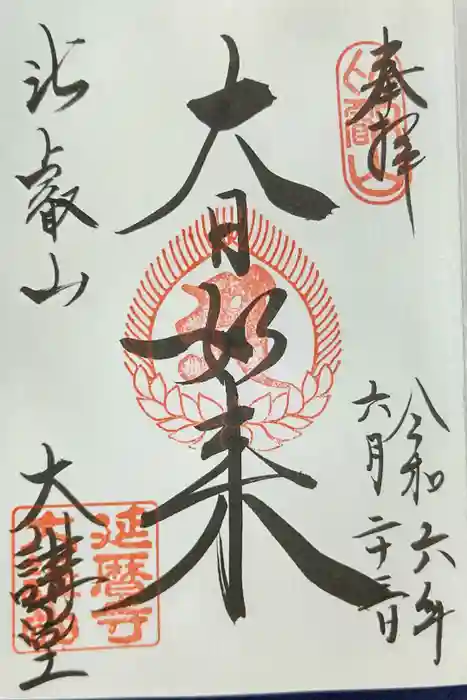 奉拝
令和六年
六月二十三日
大日如来
比叡山
大講堂
延暦寺
大講堂